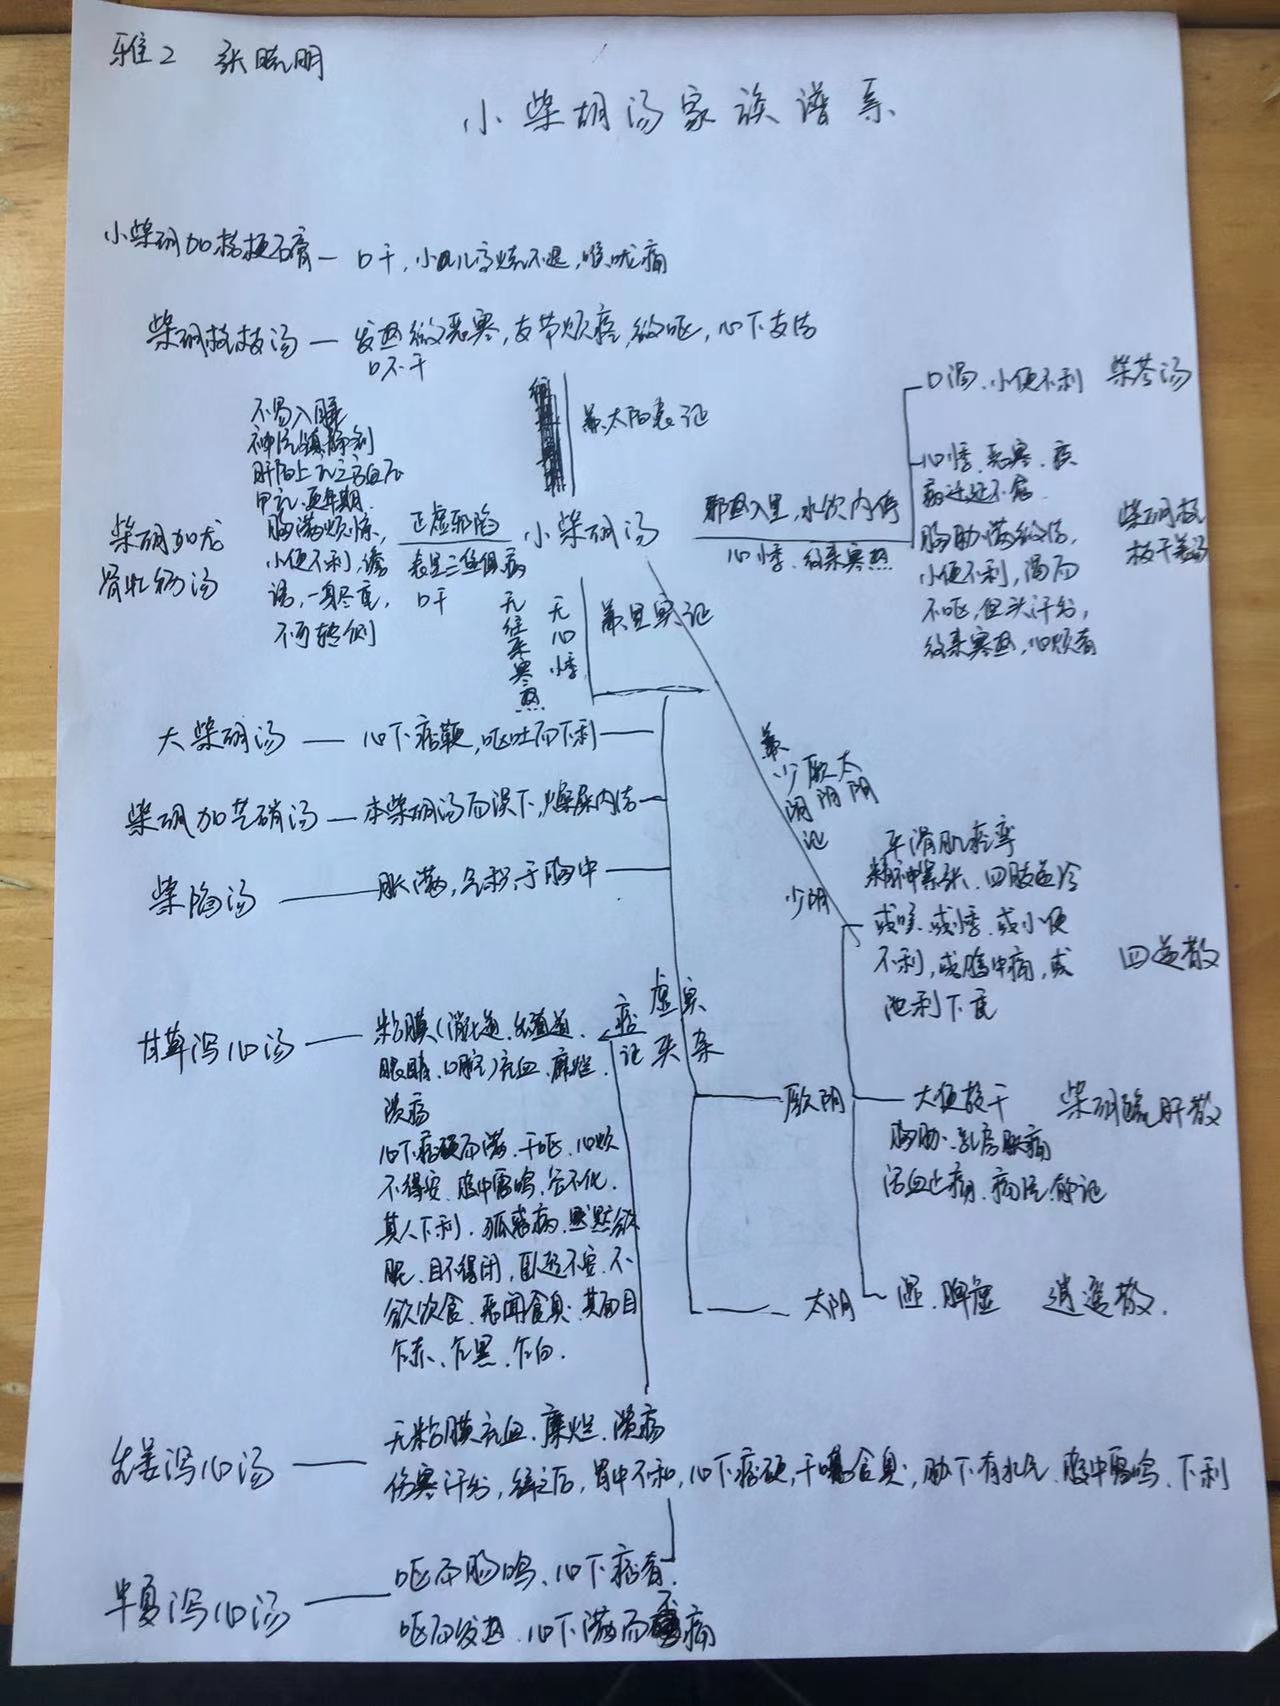 雅2 张晓明
小柴胡汤家族谱系
小柴胡加桔梗石膏— 口干，小儿高烧不退，喉咙痛
柴胡桂枝汤— 发热微恶寒，支节烦疼，微呕，心下支结
口不干
兼太阳表证
口渴、小便不利 柴苓汤
不易入睡
神经镇静剂
肝阳上亢之高血压
甲亢、更年期
柴胡加龙
骨牡蛎汤
胸满烦惊，
小便不利，谵
语，一身尽重，
不可转侧
正虚邪陷
表里三焦俱病
口干
小柴胡汤
邪热入里，水饮内停
心悸、往来寒热
心悸、恶寒、疾
病迁延不愈
胸胁满微结，
小便不利，渴而
不呕，但头汗出，
往来寒热，心烦者
柴胡桂
枝干姜汤
无往来寒热
无心悸
兼里实证
大柴胡汤— 心下痞鞕，呕吐而下利
柴胡加芒硝汤—本柴胡汤而误下，燥屎内结
柴陷汤—胀满，气积于胸中
兼少阴厥阴太阴证
少阴
平滑肌痉挛
精神紧张、四肢逆冷
或咳、或悸、或小便
不利，或腹中痛，或
泄利下重
四逆散
甘草泻心汤—粘膜（消化道、
眼睛、口腔）充血、糜烂、
溃疡
心下痞硬而满、干呕、心烦
不得安、腹中雷鸣、谷不化、
其人下利、狐惑病、默默欲
眠、目不得闭，卧起不安、不
欲饮食、恶闻食臭、其面目
乍赤、乍黑、乍白.
痞证
虚实夹杂
厥阴—大便较干 柴胡疏肝散
胸胁、乳房胀痛
活血止痛、痛经
太阴 湿、脾虚 逍遥散.
生姜泻心汤—无粘膜充血、糜烂、溃疡
伤寒汗出，解之后，胃中不和，心下痞硬，干噫食臭，胁下有水气、腹中雷鸣、下利
半夏泻心汤—呕而肠鸣、心下痞者.
呕而发热、心下满而不痛